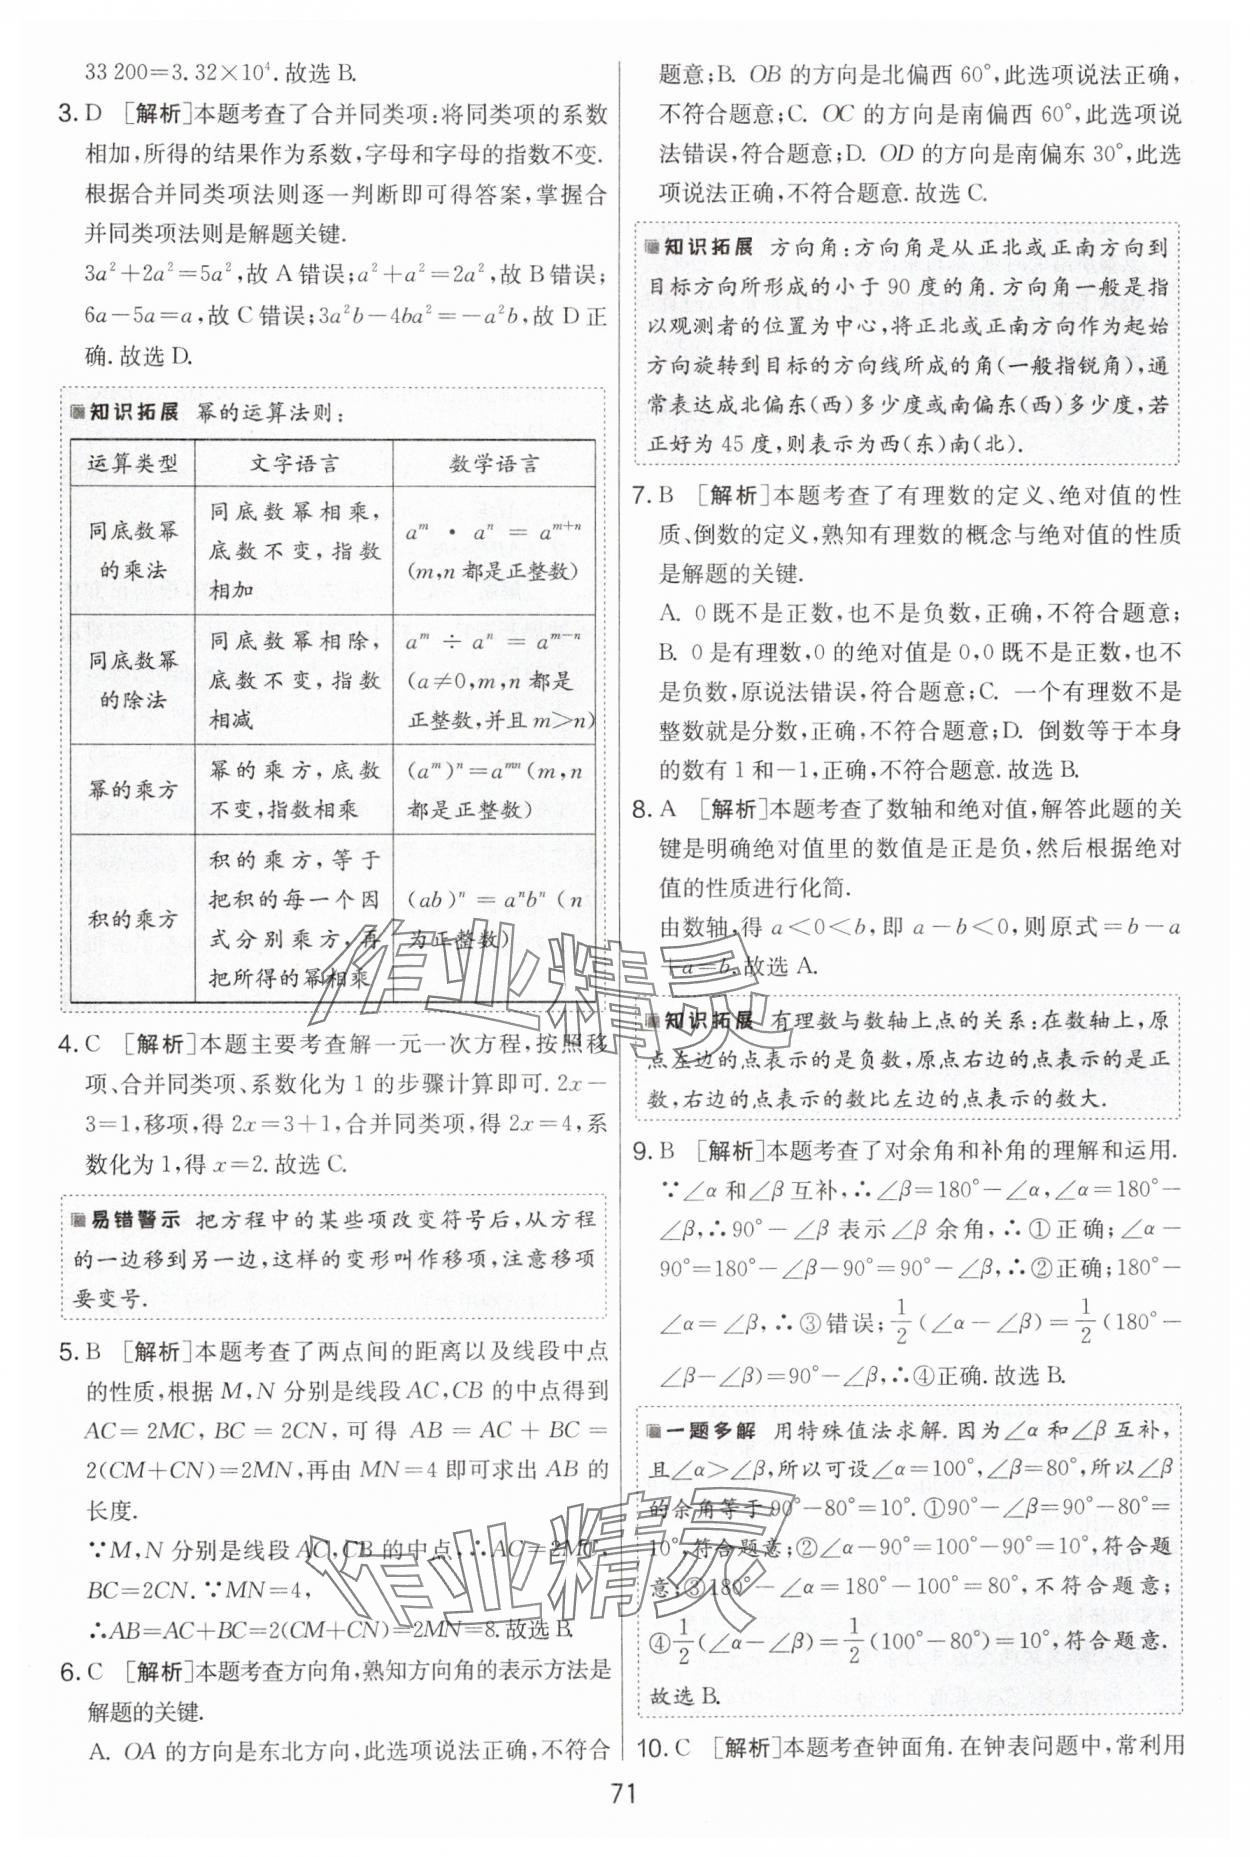 33 200=3.32×10⁴.故选 B.
3. D [解析]本题考查了合并同类项:将同类项的系数
相加,所得的结果作为系数,字母和字母的指数不变.
根据合并同类项法则逐一判断即可得答案,掌握合
并同类项法则是解题关键.
3a²+2a²=5a²,故 A 错误;a²+a²=2a²,故 B 错误;
6a-5a=a,故 C 错误;3a²b-4ba²=-a²b,故 D 正
确.故选 D.
知识拓展 幂的运算法则:
运算类型 文字语言 数学语言
同底数幂
的乘法
同底数幂相乘,
底数不变,指数
相加
aᵐ · aⁿ = aᵐ⁺ⁿ
(m,n 都是正整数)
同底数幂
的除法
同底数幂相除,
底数不变,指数
相减
aᵐ ÷ aⁿ = aᵐ⁻ⁿ
(a≠0,m,n 都是
正整数,并且 m>n)
幂的乘方
幂的乘方,底数
不变,指数相乘
(aᵐ)ⁿ=aᵐⁿ(m,n
都是正整数)
积的乘方
积的乘方,等于
把积的每一个因
式分别乘方,再
把所得的幂相乘
(ab)ⁿ = aⁿbⁿ (n
为正整数)
4. C [解析]本题主要考查解一元一次方程,按照移
项、合并同类项、系数化为 1 的步骤计算即可.2x-
3=1,移项,得 2x=3+1,合并同类项,得 2x=4,系
数化为 1,得 x=2.故选 C.
易错警示 把方程中的某些项改变符号后,从方程
的一边移到另一边,这样的变形叫作移项,注意移项
要变号.
5. B [解析]本题考查了两点间的距离以及线段中点
的性质,根据 M,N 分别是线段 AC,CB 的中点得到
AC=2MC,BC=2CN,可得 AB=AC+BC=
2(CM+CN)=2MN,再由 MN=4 即可求出 AB 的
长度.
∵M,N 分别是线段 AC,CB 的中点,∴AC=2MC,
BC=2CN.∵MN=4,
∴AB=AC+BC=2(CM+CN)=2MN=8.故选 B.
6. C [解析]本题考查方向角,熟知方向角的表示方法是
解题的关键.
A. OA 的方向是东北方向,此选项说法正确,不符合
题意;B. OB 的方向是北偏西 60°,此选项说法正确,
不符合题意;C. OC 的方向是南偏西 60°,此选项说
法错误,符合题意;D. OD 的方向是南偏东 30°,此选
项说法正确,不符合题意.故选 C.
知识拓展 方向角:方向角是从正北或正南方向到
目标方向所形成的小于 90 度的角.方向角一般是指
以观测者的位置为中心,将正北或正南方向作为起始
方向旋转到目标的方向线所成的角(一般指锐角),通
常表达成北偏东(西)多少度或南偏东(西)多少度,若
正好为 45 度,则表示为西(东)南(北).
7. B [解析]本题考查了有理数的定义、绝对值的性
质、倒数的定义,熟知有理数的概念与绝对值的性质
是解题的关键.
A. 0 既不是正数,也不是负数,正确,不符合题意;
B. 0 是有理数,0 的绝对值是 0,0 既不是正数,也不
是负数,原说法错误,符合题意;C. 一个有理数不是
整数就是分数,正确,不符合题意;D. 倒数等于本身
的数有 1 和-1,正确,不符合题意.故选 B.
8. A [解析]本题考查了数轴和绝对值,解答此题的关
键是明确绝对值里的数值是正是负,然后根据绝对
值的性质进行化简.
由数轴,得 a<0<b,即 a-b<0,则原式=b-a
+a=b.故选 A.
知识拓展 有理数与数轴上点的关系:在数轴上,原
点左边的点表示的是负数,原点右边的点表示的是正
数,右边的点表示的数比左边的点表示的数大.
9. B [解析]本题考查了对余角和补角的理解和运用.
∵∠α 和∠β 互补,∴∠β=180°-∠α,∠α=180°-
∠β,∴90°-∠β 表示∠β 余角,∴①正确;∠α-
90°=180°-∠β-90°=90°-∠β,∴②正确;180°-
∠α=∠β,∴③错误;1/2(∠α-∠β)=1/2(180°-
∠β-∠β)=90°-∠β,∴④正确.故选 B.
一题多解 用特殊值法求解.因为∠α 和∠β 互补,
且∠α>∠β,所以可设∠α=100°,∠β=80°,所以∠β
的余角等于 90°-80°=10°.①90°-∠β=90°-80°=
10°,符合题意;②∠α-90°=100°-90°=10°,符合题
意;③180°-∠α=180°-100°=80°,不符合题意;
④1/2(∠α-∠β)=1/2(100°-80°)=10°,符合题意.
故选 B.
10. C [解析]本题考查钟面角.在钟表问题中,常利用
71
作业精灵
作业精灵